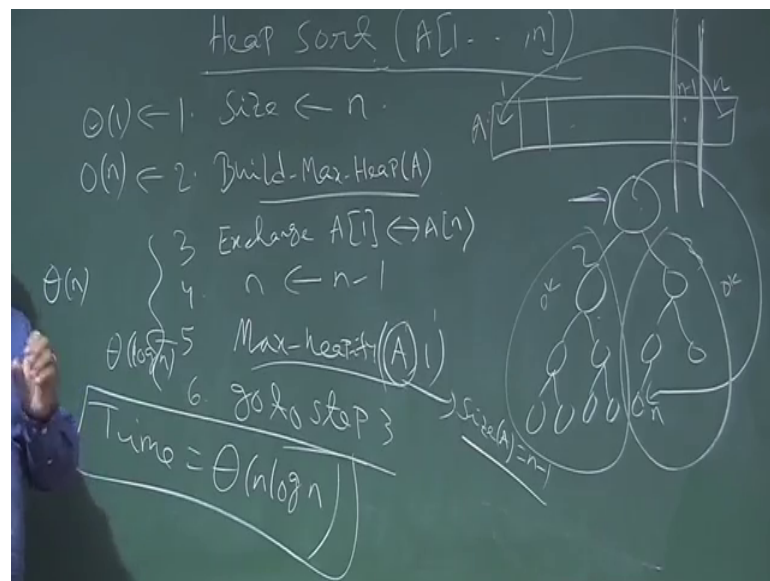 Heap Sort (A[1 - - , n])
Θ(1) ← 1. Size ← n.
O(n) ← 2. Build-Max-Heap(A)
3 Exchange A[1] ↔ A[n]
Θ(n)
4. n ← n-1
Θ(log n) 5 Max-heapify(A, 1)
6. go to step 3
Time = Θ(n log n)
Size(A) = n-1
1 n-1 n
A:
2 3
ok ok
n